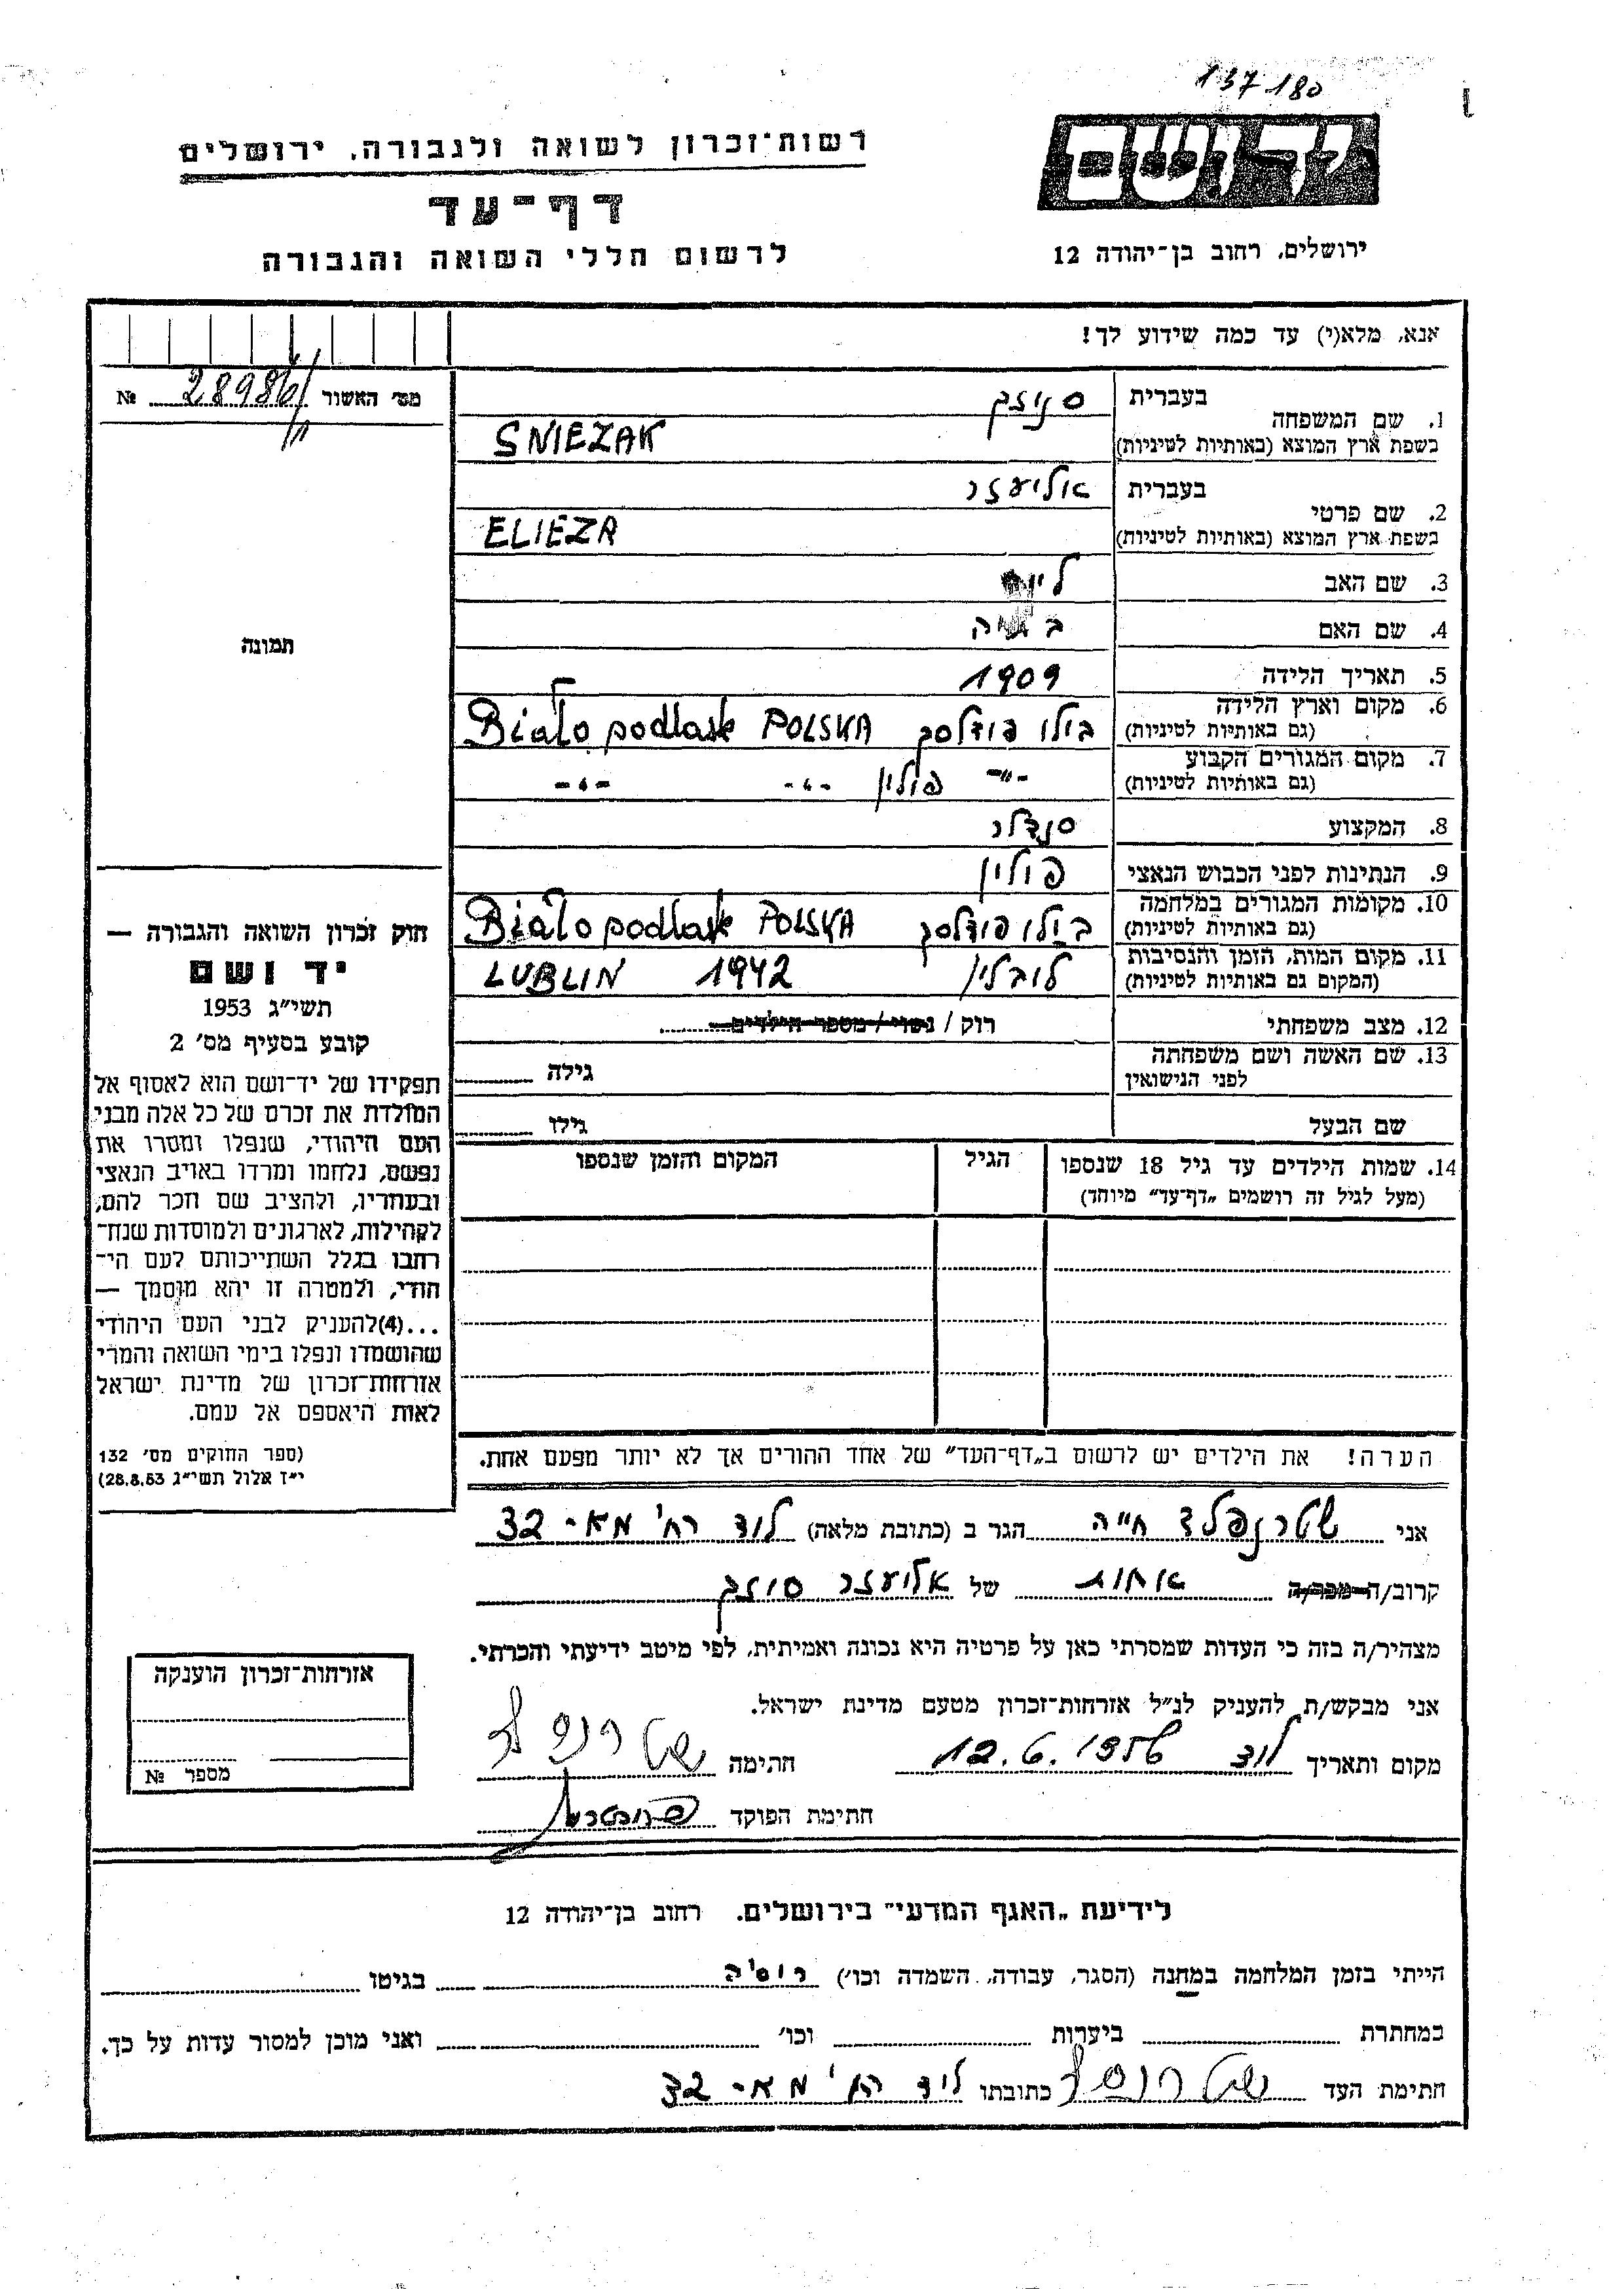 137180
רשות־זכרון לשואה ולגבורה. ירושלים
יד ושם
דף־עד
ירושלים, רחוב בן־יהודה 12
לרשום חללי השואה והגבורה
אנא, מלא(י) עד כמה שידוע לך!
מס׳ האשור 28986 №
1. שם המשפחה בעברית סניזק
בשפת ארץ המוצא (באותיות לטיניות) SNIEZAK
2. שם פרטי בעברית אליעזר
בשפת ארץ המוצא (באותיות לטיניות) ELIEZA
3. שם האב
4. שם האם
5. תאריך הלידה 1909
6. מקום וארץ הלידה (גם באותיות לטיניות) בילו פודלסק Biało podlask POLSKA
7. מקום המגורים הקבוע (גם באותיות לטיניות) -"- פולין -"- -"-
8. המקצוע סנדלר
9. הנתינות לפני הכבוש הנאצי פולין
10. מקומות המגורים במלחמה (גם באותיות לטיניות) בילו פודלסק Biało podlask POLSKA
11. מקום המות, הזמן והנסיבות (המקום גם באותיות לטיניות) לובלין 1942 LUBLIN
12. מצב משפחתי רוק / נשוי / מספר הילדים
13. שם האשה ושם משפחתה לפני הנישואין גילה
שם הבעל גילו
14. שמות הילדים עד גיל 18 שנספו הגיל המקום והזמן שנספו
(מעל לגיל זה רושמים „דף־עד״ מיוחד)
הערה! את הילדים יש לרשום ב„דף־העד״ של אחד ההורים אך לא יותר מפעם אחת.
תמונה
חוק זכרון השואה והגבורה —
יד ושם
תשי״ג 1953
קובע בסעיף מס׳ 2
תפקידו של יד־ושם הוא לאסוף אל
המולדת את זכרם של כל אלה מבני
העם היהודי, שנפלו ומסרו את
נפשם, נלחמו ומרדו באויב הנאצי
ובעוזריו, ולהציב שם וזכר להם,
לקהילות, לארגונים ולמוסדות שנח־
רבו בגלל השתייכותם לעם הי־
הודי, ולמטרה זו יהא מוסמך —
...(4)להעניק לבני העם היהודי
שהושמדו ונפלו בימי השואה והמרי
אזרחות־זכרון של מדינת ישראל
לאות היאספם אל עמם.
(ספר החוקים מס׳ 132
י״ז אלול תשי״ג 28.8.53)
אני שטרנפלד חייה הגר ב (כתובת מלאה) לוד רח׳ מא- 32
קרוב/ה מכר/ה אחות של אליעזר סניזק
מצהיר/ה בזה כי העדות שמסרתי כאן על פרטיה היא נכונה ואמיתית, לפי מיטב ידיעתי והכרתי.
אני מבקש/ת להעניק לנ״ל אזרחות־זכרון מטעם מדינת ישראל.
מקום ותאריך לוד 12.6.1956 חתימה
חתימת הפוקד
אזרחות־זכרון הוענקה
מספר №
לידיעת „האגף המדעי״ בירושלים. רחוב בן־יהודה 12
הייתי בזמן המלחמה במחנה (הסגר, עבודה, השמדה וכו׳) רוסיה בגיטו
במחתרת ביערות וכו׳ ואני מוכן למסור עדות על כך.
חתימת העד כתובתו לוד רח׳ מא- 32